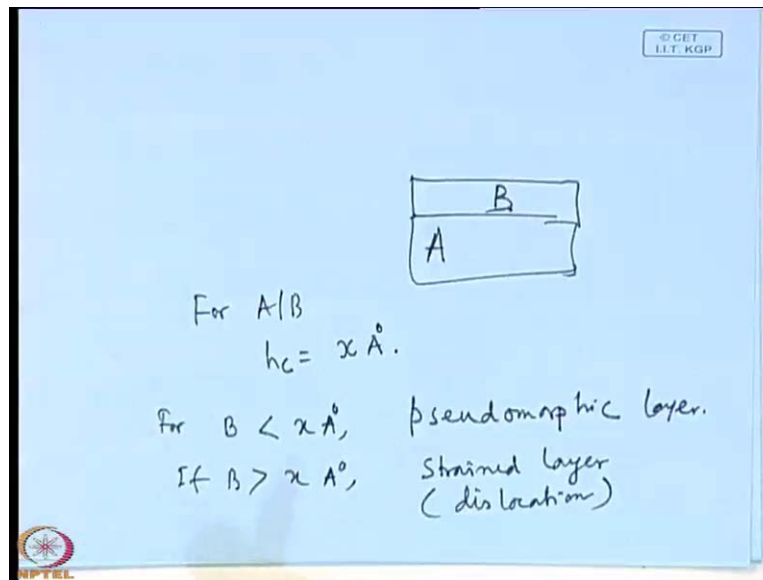 © CET
I.I.T. KGP
B
A
For A/B
hc = x Å.
For B < x Å, pseudomorphic layer.
If B > x A°, strained layer
(dislocation)
NPTEL